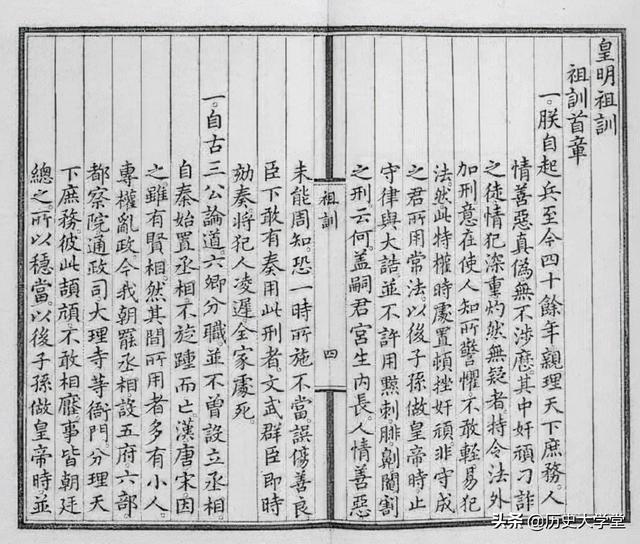 皇明祖訓
祖訓首章
一。朕自起兵至今四十餘年。親理天下庶務。人
情善惡真偽。無不涉歷。其中奸頑刁詐
之徒。情犯深重。灼然無疑者。特令法外
加刑。意在使人知所警懼。不敢輕易犯
法。然此特權時處置。頓挫奸頑。非守成
之君所用常法。以後子孫做皇帝時。止
守律與大誥。並不許用黥刺。腓劓閹割
之刑。云何。蓋嗣君宮生內長。人情善惡
未能周知。恐一時所施不當。誤傷善良
臣下敢有奏用此刑者。文武群臣即時
劾奏。將犯人凌遲。全家處死。
一。自古三公論道。六卿分職。並不曾設立丞相。
自秦始置丞相。不旋踵而亡。漢唐宋因
之。雖有賢相。然其間所用者多有小人。
專權亂政。今我朝罷丞相。設五府。六部。
都察院。通政司。大理寺等衙門。分理天
下庶務。彼此頡頏。不敢相壓。事皆朝廷
總之。所以穩當。以後子孫做皇帝時。並
祖訓
四
头条 @历史大学堂